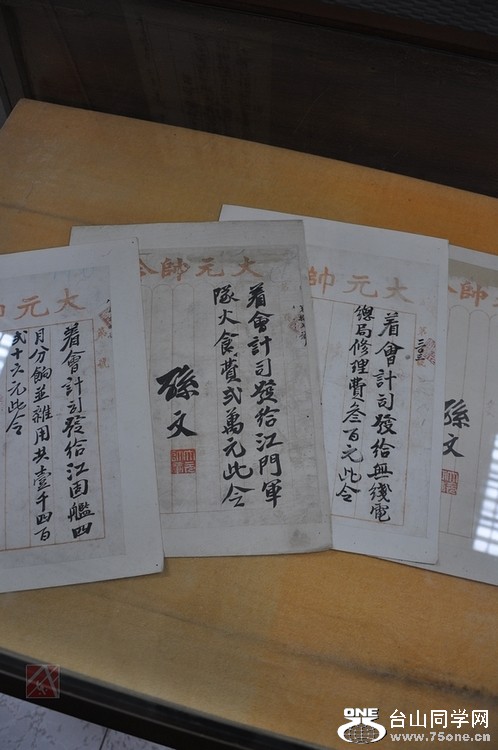 大元帥
着會計司發给江固艦四
月分餉並雜用共壹千四百
弍十六元此令
大元帥令
着會計司發给江門軍
隊火食費弍萬元此令
孫文
大元帥
第三〇三號
着會計司發给無綫電
總局修理費叁百元此令
帥令
孫文
ONE
台山同学网
www.75one.cn